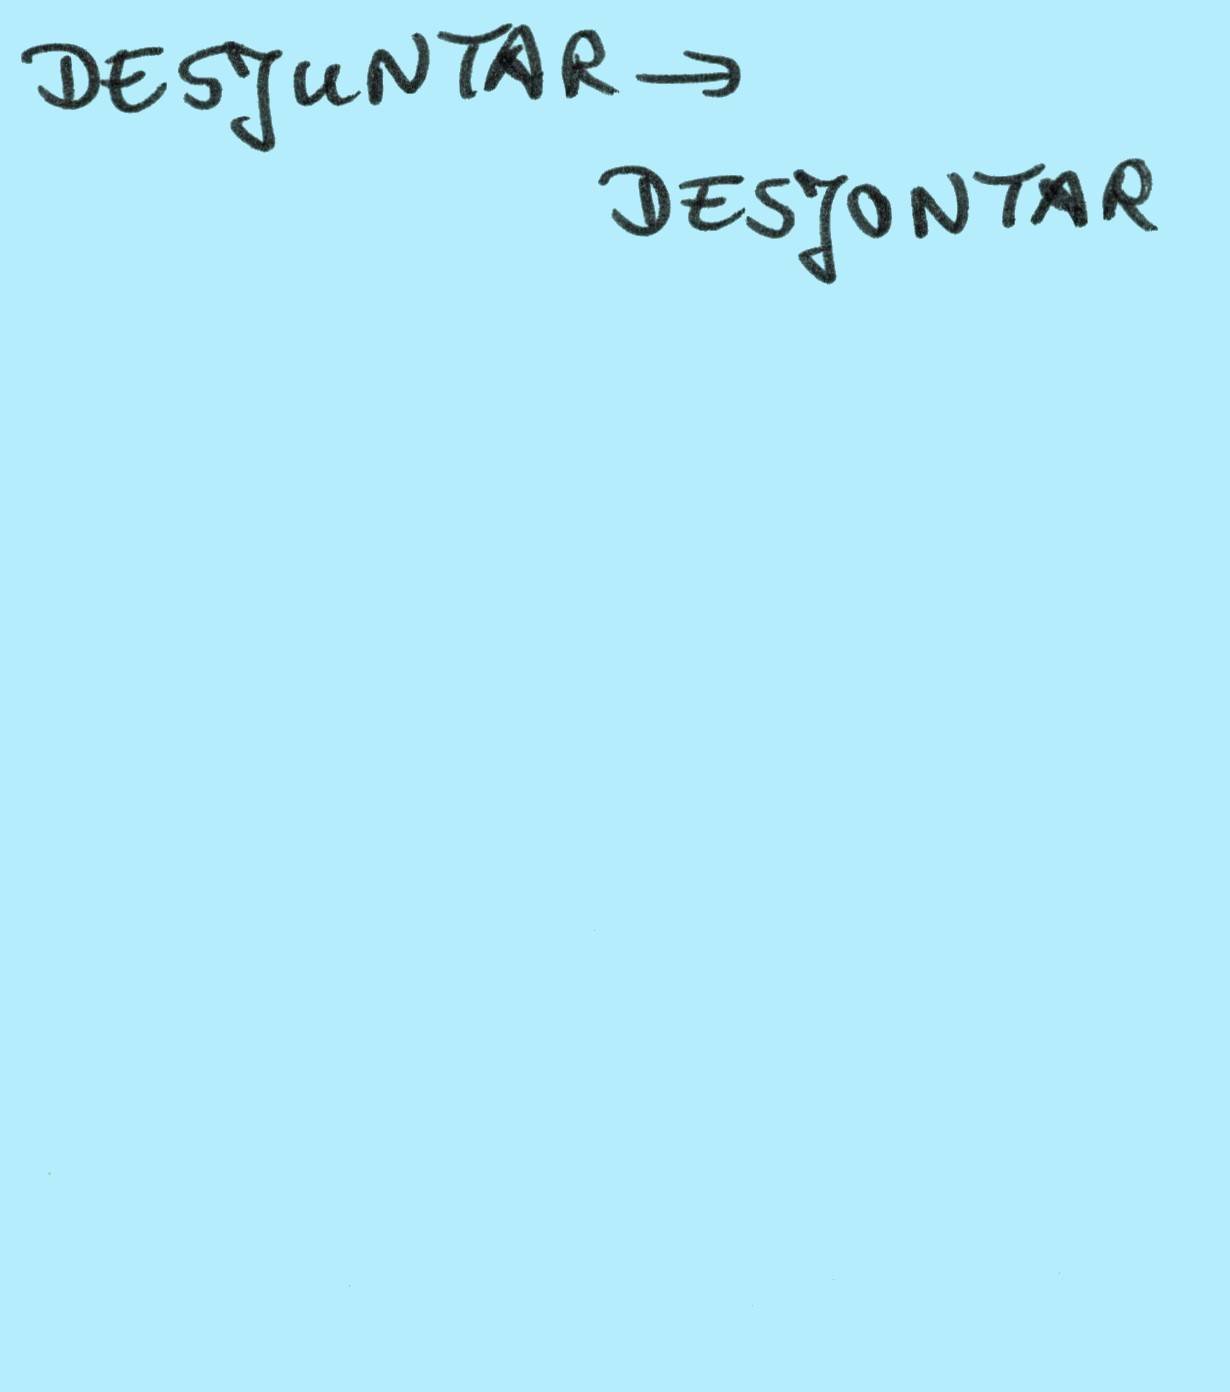 DESJUNTAR →
DESJONTAR